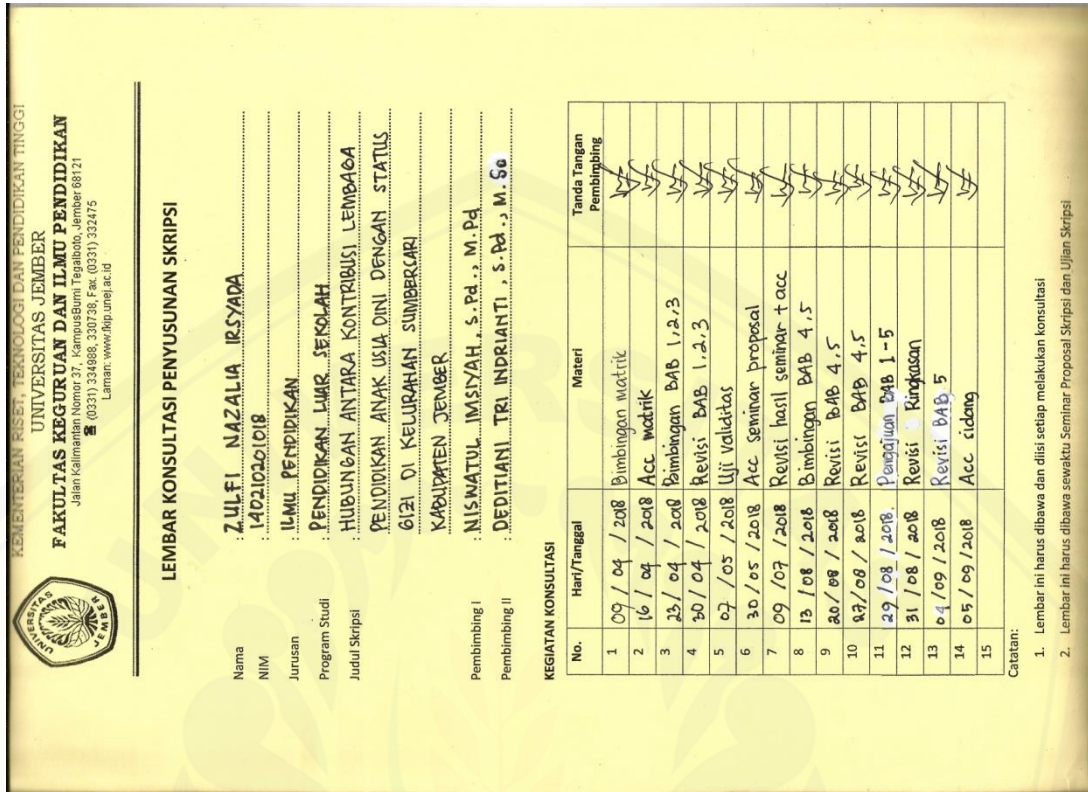 KEMENTERIAN RISET, TEKNOLOGI DAN PENDIDIKAN TINGGI
UNIVERSITAS JEMBER
FAKULTAS KEGURUAN DAN ILMU PENDIDIKAN
Jalan Kalimantan Nomor 37, KampusBumi Tegalboto, Jember 68121
☎ (0331) 334988, 330738, Fax. (0331) 332475
Laman: www.fkip.unej.ac.id
UNIVERSITAS JEMBER
LEMBAR KONSULTASI PENYUSUNAN SKRIPSI
Nama : ZULFI NAZALIA IRSYADA
NIM : 140210201018
Jurusan : ILMU PENDIDIKAN
Program Studi : PENDIDIKAN LUAR SEKOLAH
Judul Skripsi : HUBUNGAN ANTARA KONTRIBUSI LEMBAGA
PENDIDIKAN ANAK USIA DINI DENGAN STATUS
GIZI DI KELURAHAN SUMBERSARI
KABUPATEN JEMBER
Pembimbing I : NISWATUL IMSIYAH, S.Pd., M.Pd
Pembimbing II : DEDITIANI TRI INDRIANTI, S.Pd., M.Sc
KEGIATAN KONSULTASI
No. Hari/Tanggal Materi Tanda Tangan Pembimbing
1 09 / 04 / 2018 Bimbingan matrik
2 16 / 04 / 2018 Acc matrik
3 23 / 04 / 2018 Bimbingan BAB 1,2,3
4 30 / 04 / 2018 Revisi BAB 1,2,3
5 07 / 05 / 2018 Uji validitas
6 30 / 05 / 2018 Acc seminar proposal
7 09 / 07 / 2018 Revisi hasil seminar + acc
8 13 / 08 / 2018 Bimbingan BAB 4,5
9 20 / 08 / 2018 Revisi BAB 4,5
10 27 / 08 / 2018 Revisi BAB 4,5
11 29 / 08 / 2018. Pengajuan BAB 1-5
12 31 / 08 / 2018 Revisi Ringkasan
13 04 / 09 / 2018 Revisi BAB 5
14 05 / 09 / 2018 Acc sidang
15
Catatan:
1. Lembar ini harus dibawa dan diisi setiap melakukan konsultasi
2. Lembar ini harus dibawa sewaktu Seminar Proposal Skripsi dan Ujian Skripsi